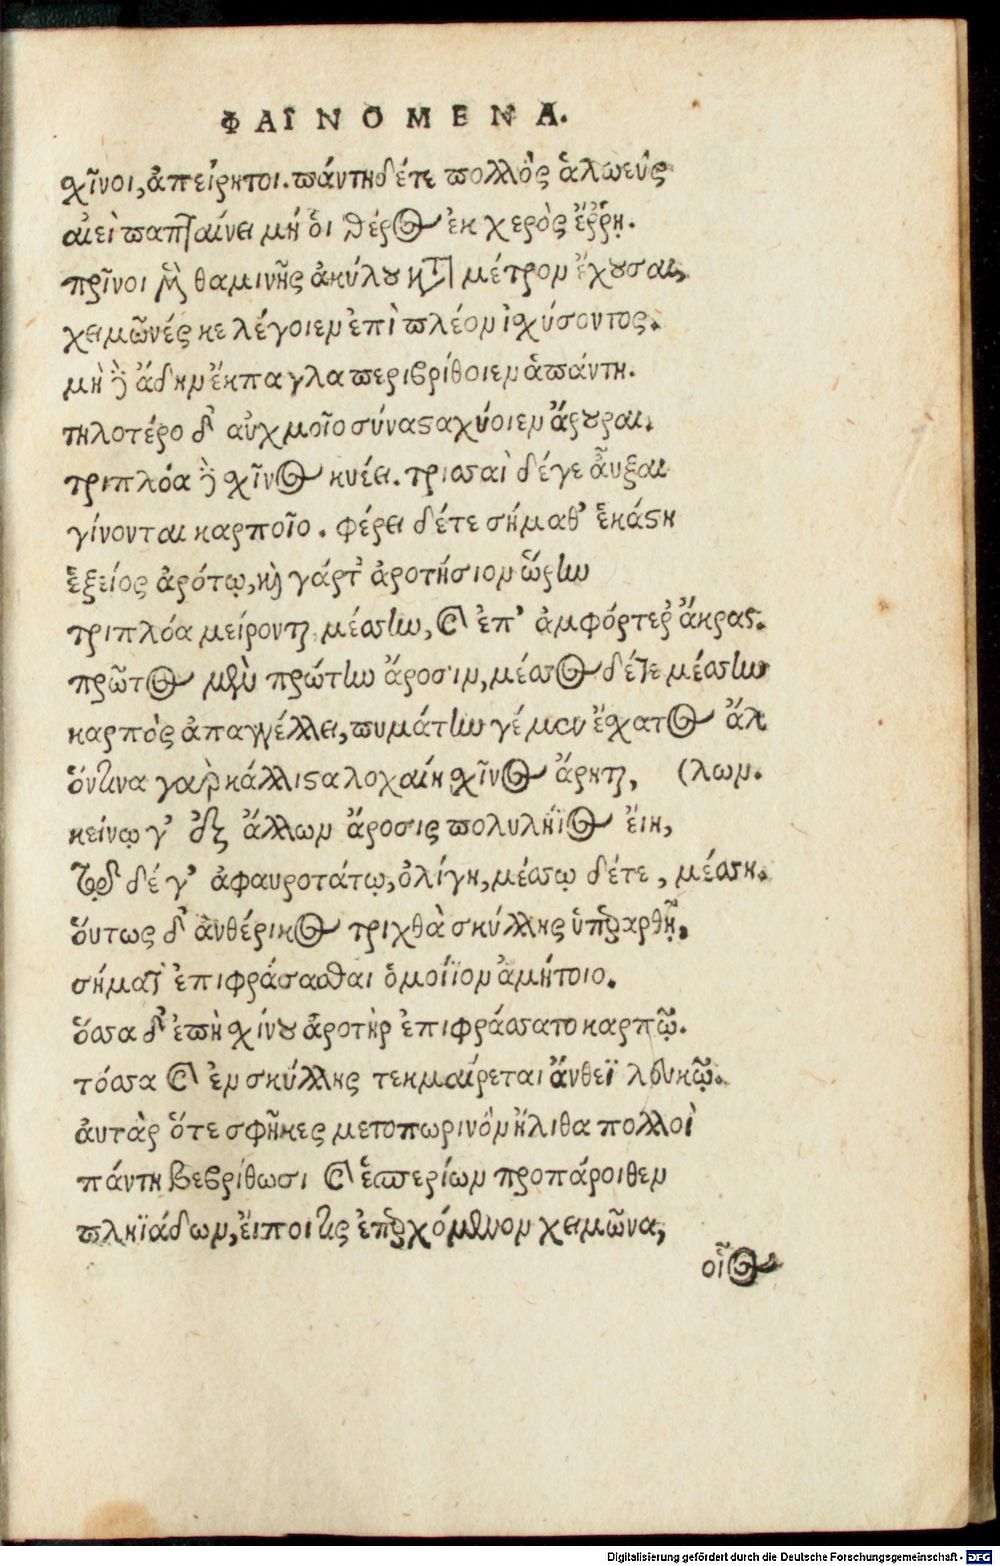 ΦΑΙΝΟΜΕΝΑ.
χῖνοι, ἀπείρητοι. πάντη δέ τε πολλὸς ἁλωεὺς
αἰεὶ παπταίνει μή ὁι θέρος ἐκ χερὸς ἔῤῥῃ.
πρῖνοι μὲν θαμινῆς ἀκύλου κατὰ μέτρον ἔχουσαι,
χειμῶνές κε λέγοιεν ἐπὶ πλέον ἰχύσοντος.
μὴ δὲ ἄδην ἔκπαγλα περιβρίθοιεν ἁπάντη.
τηλοτέρο δ' αὐχμοῖο συνασταχύοιεν ἄρουραι.
τριπλόα δὲ χῖνος κυέει. τρισσαὶ δέ γε ἄυξαι
γίνονται καρποῖο. φέρει δέ τε σήμαθ' ἑκάστη
ἑξείος ἀρότῳ, καὶ γάρ τ' ἀροτήσιον ὥρην
τριπλόα μείρονται, μέσσην, καὶ ἐπ' ἀμφότερ' ἄκρας.
πρῶτος μὲν πρώτην ἄροσιν, μέσσος δέ τε μέσσην
καρπὸς ἀπαγγέλλει, πυμάτην γέ μεν ἔχατος ἄλ
ὅντινα γὰρ κάλλιστα λοχαίη χῖνος ἄρηται, (λων.
κείνῳ γ' ἐξ ἄλλων ἄροσις πολυλήϊος ἔιη,
τῷ δέ γ' ἀφαυροτάτῳ, ὀλίγη, μέσσῳ δέ τε, μέσση.
ὅυτως δ' ἀνθέρικος τριχθὰ σκύλλης ὑπεραρθῇ,
σήματ' ἐπιφράσασθαι ὁμοίϊον ἀμήτοιο.
ὅσσα δ' ἐπὴ χίνου ἀροτὴρ ἐπιφράσσατο καρπῷ.
τόσσα καὶ ἐν σκύλλης τεκμαίρεται ἄνθεϊ λευκῷ.
ἀυτὰρ ὅτε σφῆκες μετοπωρινὸν ἤλιθα πολλοὶ
πάντη βεβρίθωσι καὶ ἑσπερίων προπάροιθεν
πληϊάδων, ἔιποι τις ἐπερχόμενον χειμῶνα,
οἷος